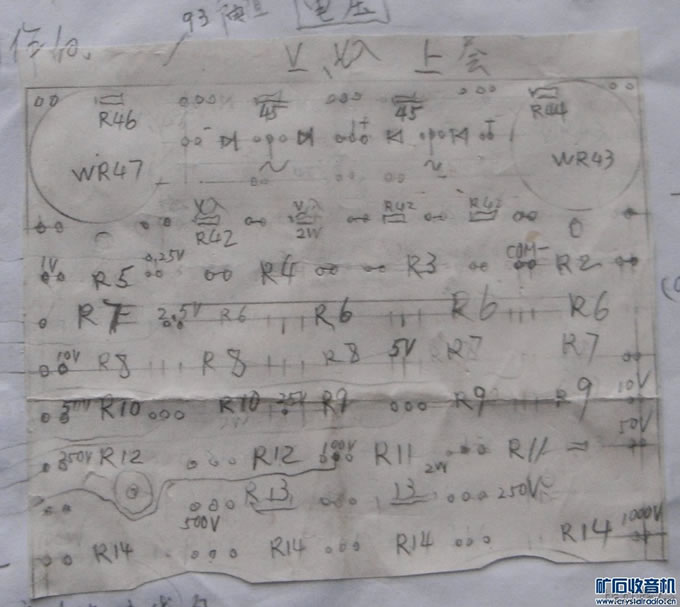 93 电压
V 欧 上会
R46 45 45 R44
- + +
WR47 ~ ~ WR43
R42 2W R42 R42
1V R5 0.25V R4 R3 COM- R2
R7 2.5V R6 R6 R6 R6
10V R8 R8 R8 5V R7 R7
R10 R10 25V R9 R9 R9 10V
50V
250V R12 R12 100V R11 2W R11 =
R13 13 250V
500V
R14 R14 R14 R14 1000V
矿石收音机
www.crystalradio.cn